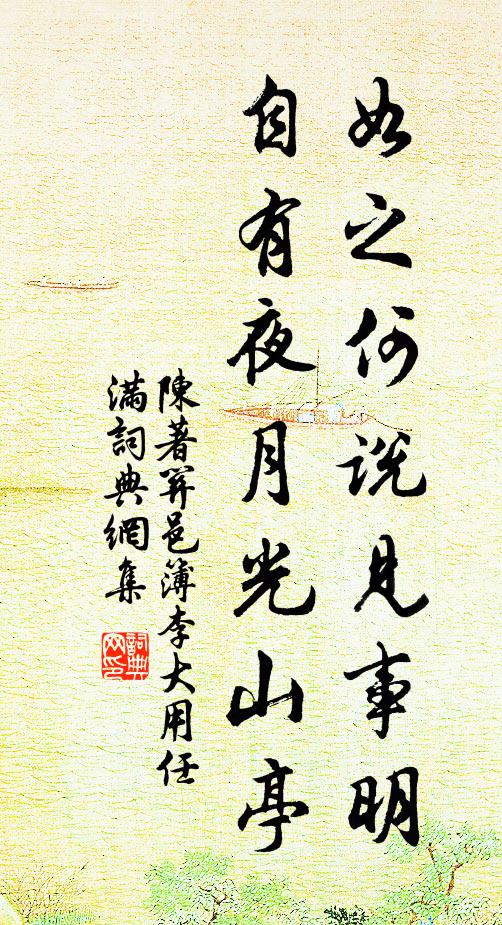 如之何説見事明
自有夜月光山亭
陳著弁邑簿李大用任
滿詞典網集
詞典
网印